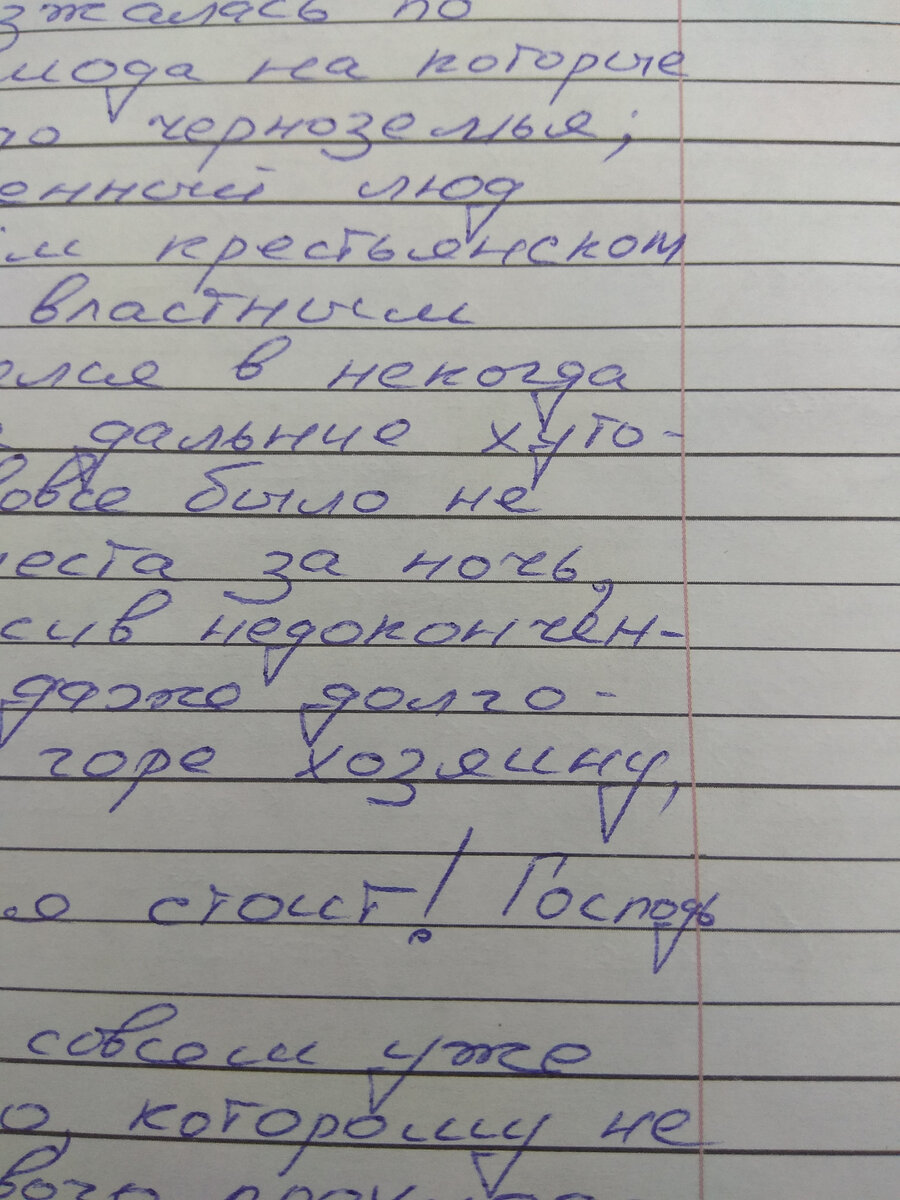 зжалась по
мода на которые
до черноземья;
енный люд
им крестьянском
властным
елся в некогда
дальние хуто-
вовсе было не
места за ночь,
сив недокончен-
даже долго-
горе хозяину,
стоит! Господь
совсем уже
о, которому не
вого